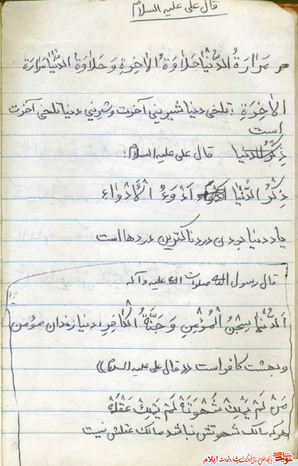 قال علی علیه السلام
مَرارَةُ الدُّنْیا حَلاوَةُ الاخِرَةِ وَ حَلاوَةُ الدُّنْیا مَرارَةُ
الاخِرَةِ : تلخی دنیا شیرینی آخرت و شیرینی دنیا تلخی آخرت
است
ذِکْرُ الدُّنیا قال علی علیه السلام:
ذِکْرُ الدُّنْیا اَدْوَءُ الْأَدْواءِ
یاد دنیا بودن دردناکترین دردها است
قال رسول الله صلوات الله علیه و آله
اَلدُّنْیا سِجْنُ الْمُؤْمِنِ وَ جَنَّةُ الْکافِرِ دنیا زندان مؤمن
و بهشت کافر است قال علی علیه السلام
مَنْ لَمْ یَمْلِکْ شَهْوَتَهُ لَمْ یَمْلِکْ عَقْلَهُ
هر که مالک شهوتش نباشد مالک عقلش نیست